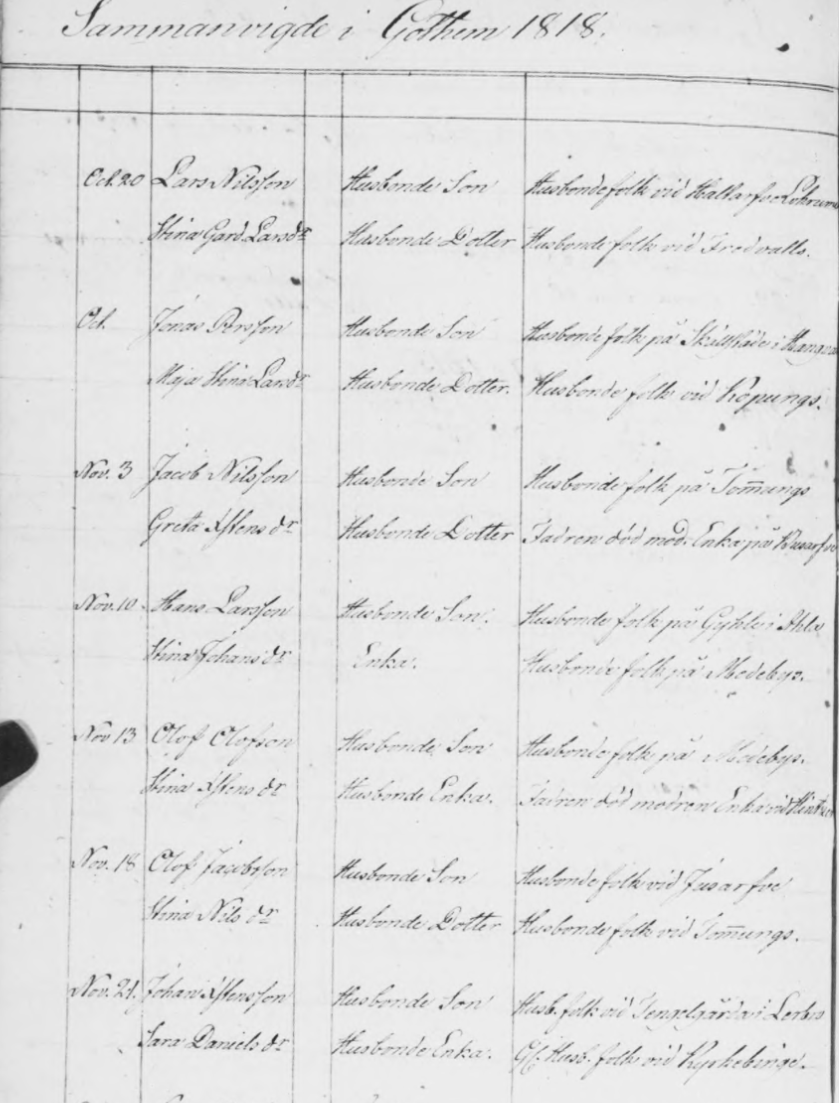 Sammanvigde i Gothem 1818.
Oct. 20 Lars Nilsson Husbonde Son Husbondefolk vid Hallarfve
Stina Gard Lars dr Husbonde Dotter Husbonde folk vid Fredvalls.
Oct. Jonas Persson Husbonde Son Husbonde folk på i
Maja Stina Lars dr Husbonde Dotter. Husbonde folk vid Kopungs.
Nov. 3 Jacob Nilsson Husbonde Son Husbonde folk på Tom̄ungs
Greta Xstens dr Husbonde Dotter Fadren död mod. Enka på
Nov. 10. Hans Larsson Husbonde Son. Husbonde folk på i
Stina Johans dr Enka. Husbonde folk på Medebys.
Nov 13 Olof Olofson Husbonde Son Husbonde folk på Medebys.
Stina Xstens dr Husbonde Enka. Fadren död modren Enka vid
Nov. 18 Olof Jacobsson Husbonde Son Husbonde folk vid Jusarfve
Stina Nils dr Husbonde Dotter Husbonde folk vid Tom̄ungs.
Nov. 21. Johan Xstensson Husbonde Son Husb. folk vid Tengelgårda i
Sara Daniels dr Husbonde Enka. Gl. Husb. folk vid Kyrkebinge.